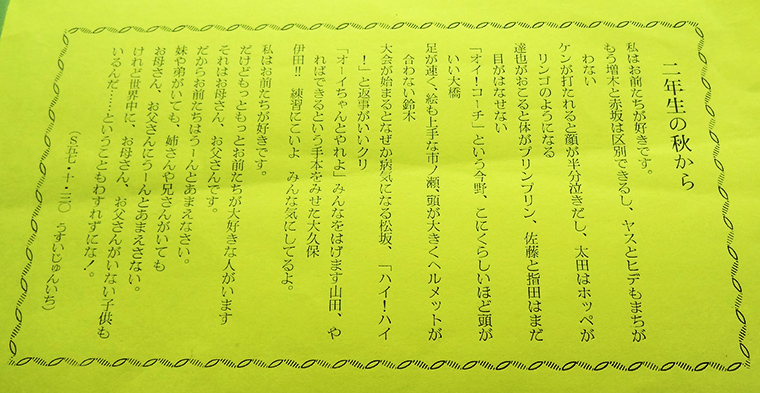 二年生の秋から
私はお前たちが好きです。
もう増木と赤坂は区別できるし、ヤスとヒデもまちが
わない
ケンが打たれると顔が半分泣きだし、太田はホッペが
リンゴのようになる
達也がおこると体がプリンプリン、佐藤と指田はまだ
目がはなせない
「オイ！コーチ」という今野、こにくらしいほど頭が
いい大橋
足が速く、絵も上手な市ノ瀬、頭が大きくヘルメットが
合わない鈴木
大会が始まるとなぜか病気になる松坂、「ハイ！ハイ
！」と返事がいいクリ
「オーイちゃんとやれよ」みんなをはげます山田、や
ればできるという手本をみせた大久保
伊田!!　練習にこいよ　みんな気にしてるよ。
私はお前たちが好きです。
だけどもっともっとお前たちが大好きな人がいます
それはお母さん、お父さんです。
だからお前たちはうーんとあまえなさい。
妹や弟がいても、姉さんや兄さんがいても
お母さん、お父さんにうーんとあまえさない。
けれど世界中に、お母さん、お父さんがいない子供も
いるんだ……ということもわすれずにな！。
（S五七・十・三〇　うすいじゅんいち）